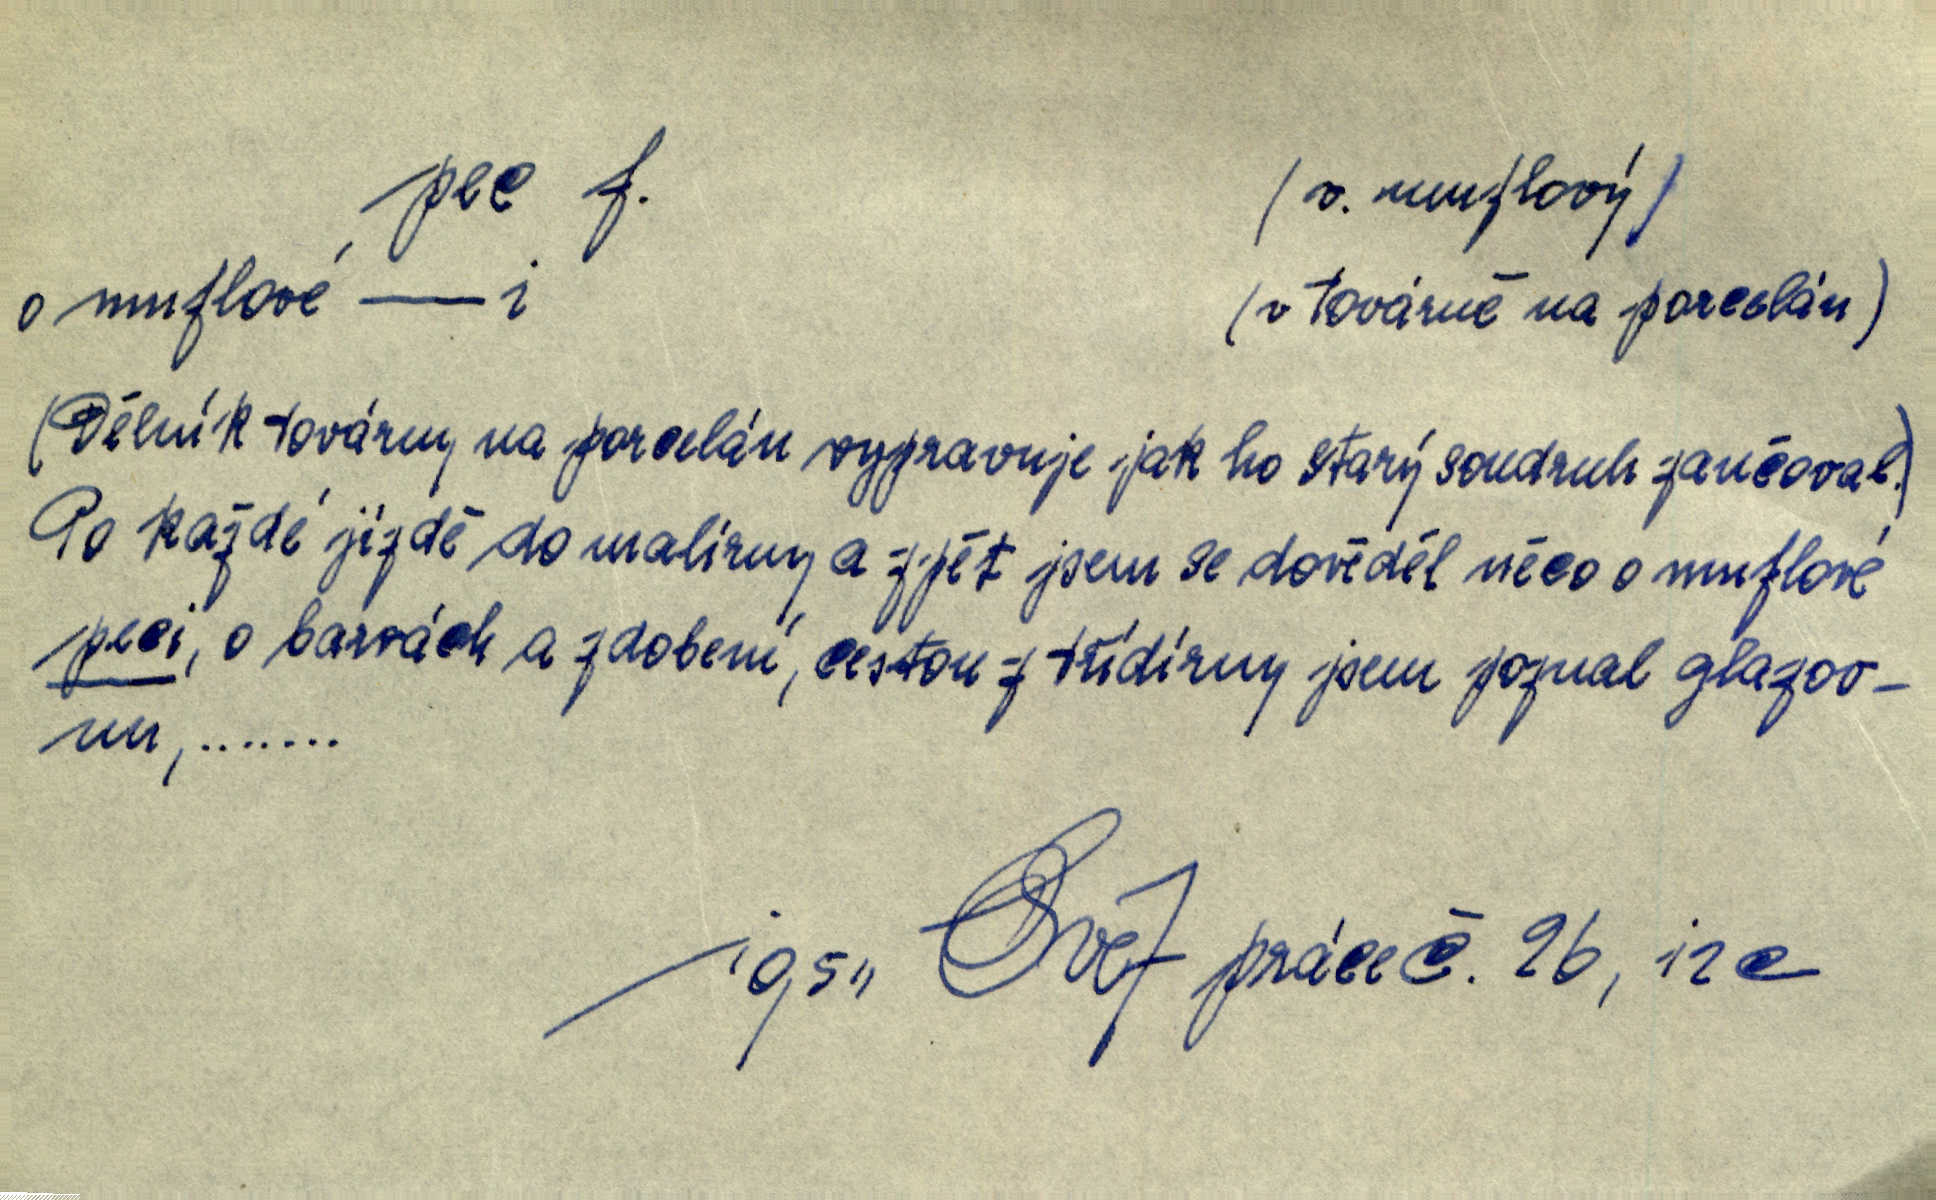 pec f. (v. muflový)
o muflové — i (v továrně na porcelán)
(Dělník továrny na porcelán vypravuje jak ho starý soudruh zaučoval.)
Po každé jízdě do malírny a zpět jsem se dověděl něco o muflové
peci, o barvách a zdobení, cestou z třídírny jsem poznal glazov-
nu, .......
1951, Svět práce č. 26, 12c